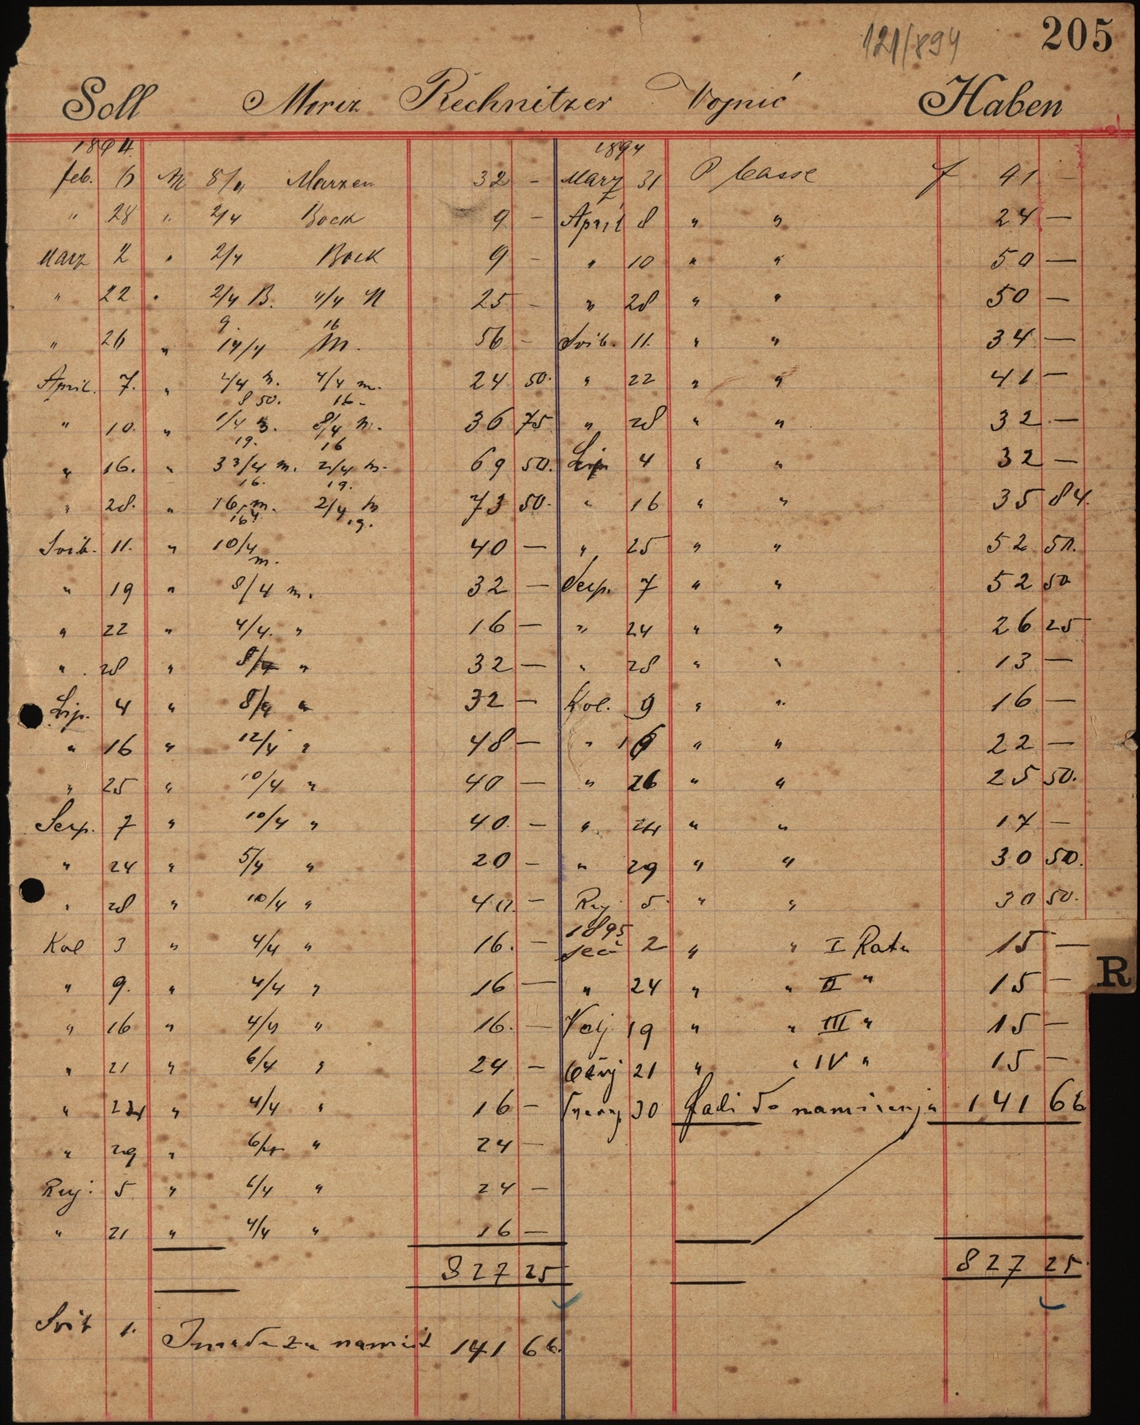 121/894 205
Soll Moriz Rechnitzer Vojnić Haben
1894 1894
feb. 6 M 8/4 Marzen 32 — Marz 31 P Casse f 41 —
" 28 " 2/4 Bock 9 — April 8 " " 24 —
Marz 2 " 2/4 Bock 9 — " 10 " " 50 —
" 22 " 2/4 B. 4/4 M 25 — " 28 " " 50 —
9. 16
" 26 " 14/4 M. 56 — Svib. 11. " " 34 —
April. 7. " 4/4 m. 24 50. " 22 " " 41 —
8 50. 16 —
" 10. " 1/4 8/4 m. 36 75 " 28 " " 32 —
19. 16
" 16. " 3 3/4 m. 2/4 m. 69 50. Lip. 4 " " 32 —
16. 19.
" 28. " 16 m. 2/4 73 50. " 16 " " 35 84.
19.
Svib. 11. " 10/4 m. 40 — " 25 " " 52 50.
" 19 " 8/4 m. 32 — Serp. 7 " " 52 50
" 22 " 4/4. " 16 — " 24 " " 26 25
" 28 " 8/4 " 32 — " 28 " " 13 —
Lip. 4 " 8/4 " 32 — Kol. 9 " " 16 —
" 16 " 12/4 " 48 — " 16 " " 22 —
" 25 " 10/4 " 40 — " 26 " " 25 50.
Serp. 7 " 10/4 " 40. — " 24 " " 17 —
" 24 " 5/4 " 20 — " 29 " " 30 50.
" 28 " 10/4 " 40. — Ruj. 5. " " 30 50.
Kol 3 " 4/4 " 16. — 1895 seč 2 " " I Rata 15 —
" 9. " 4/4 " 16 — " 24 " " II " 15 —
" 16 " 4/4 " 16. — Velj 19 " " III " 15 —
" 21 " 6/4 " 24 — Ožuj 21 " " IV " 15 —
" 24 " 4/4 " 16 — Travnj 30 fali do namirenja 141 66
" 29 " 6/4 " 24 —
Ruj. 5 " 6/4 " 24 —
" 21 " 4/4 " 16 —
827 25 827 25
R
Svib 1. Imade za namirit 141 66.